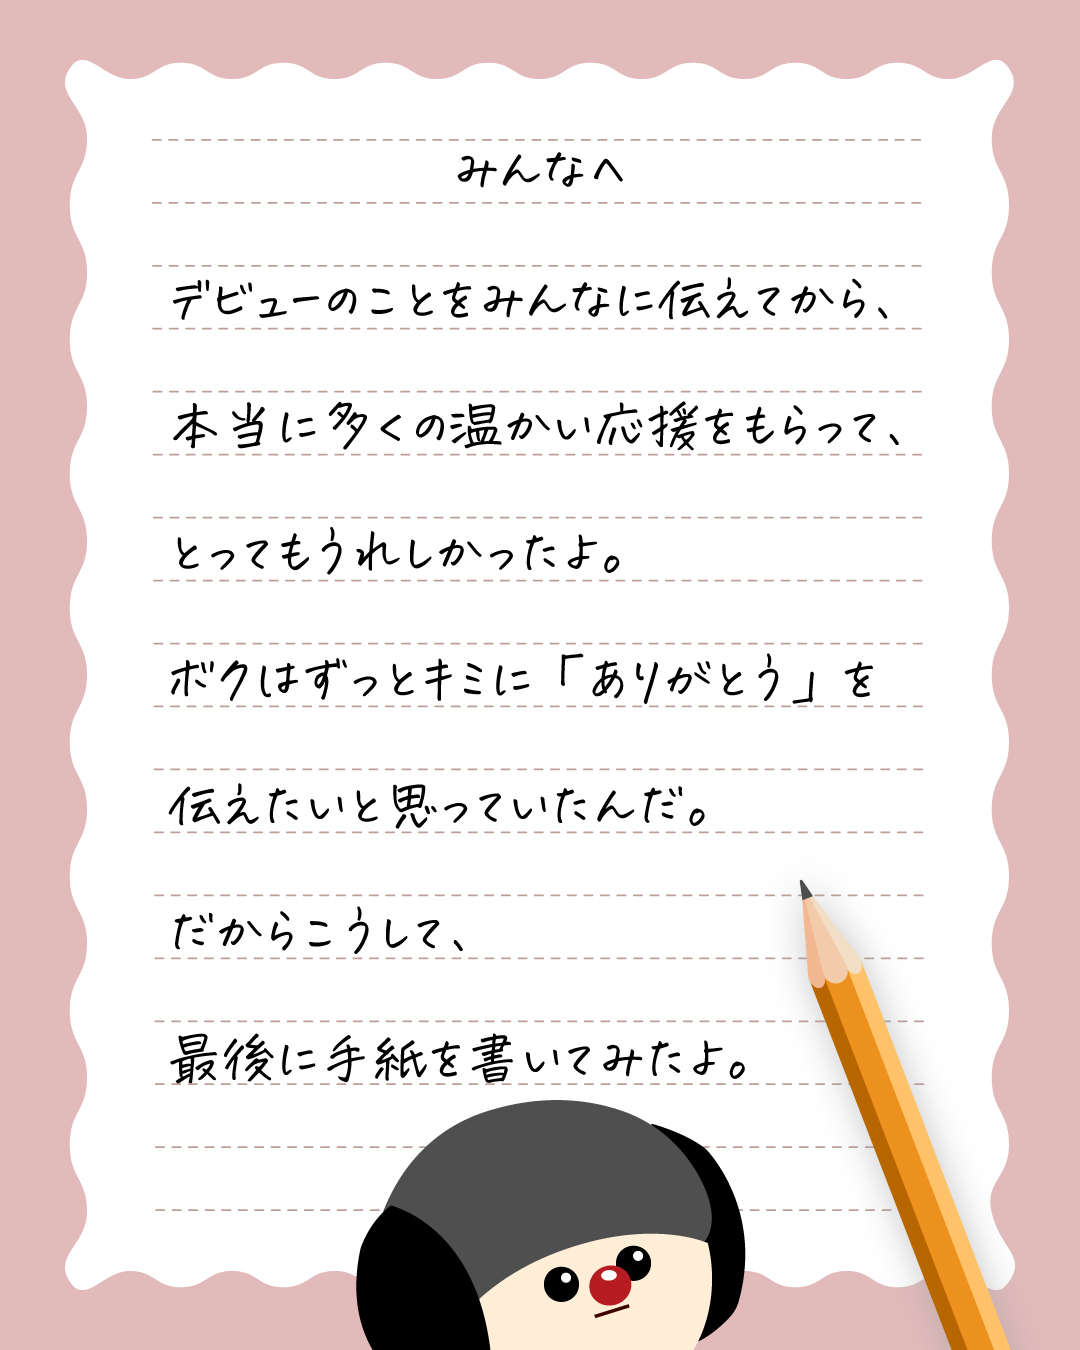 みんなへ
デビューのことをみんなに伝えてから、
本当に多くの温かい応援をもらって、
とってもうれしかったよ。
ボクはずっとキミに「ありがとう」を
伝えたいと思っていたんだ。
だからこうして、
最後に手紙を書いてみたよ。